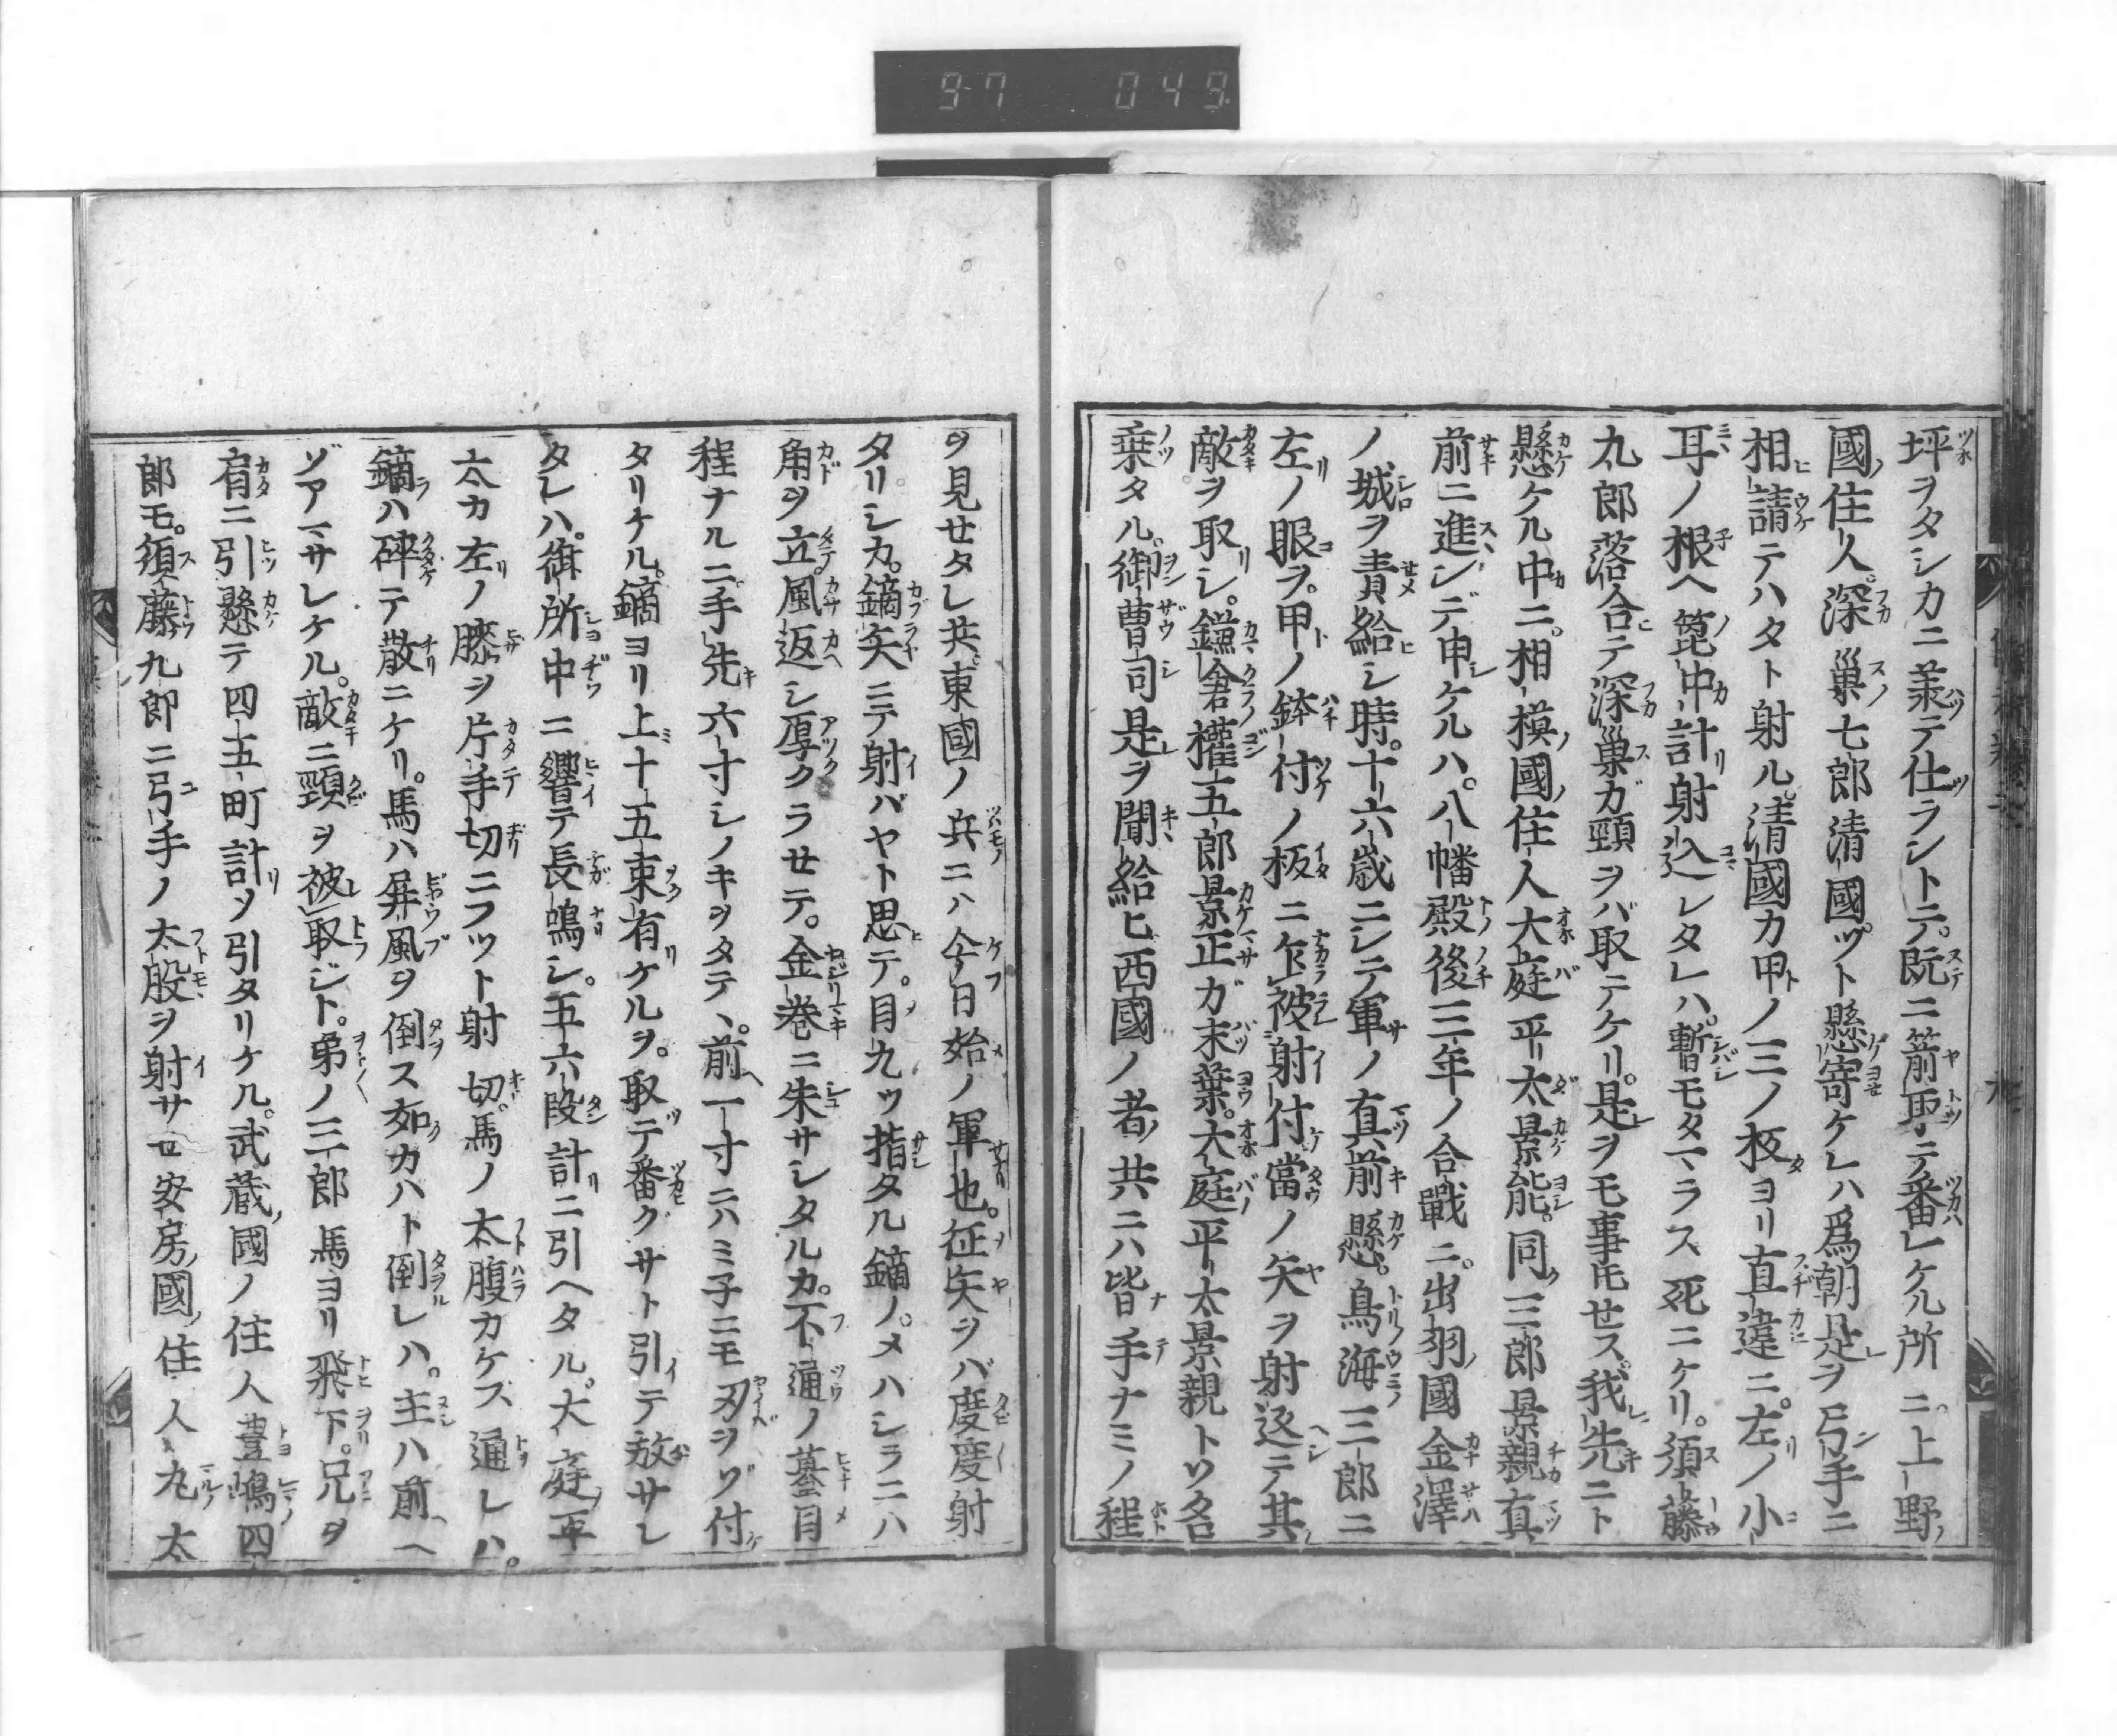 97 049
坪ヲタシカニ羕テ仕ラントテ。既ニ箭取テ番レケル所ニ。上野ノ
國ノ住人。深巢七郎清國。ツト懸寄ケレハ爲朝是ヲ弓手ニ
相請テハタト射ル。清國カ甲ノ三ノ板ヨリ直違ニ。左ノ小
耳ノ根ヘ箆中計射込レタレハ。暫モタマラス死ニケリ。須藤
九郎落合テ深巢ガ頸ヲバ取テケリ。是ヲモ事トモセス。我先ニト
懸ケル中ニ。相模國ノ住人大庭平太景能。同三郎景親真
前ニ進ンデ申ケルハ。八幡殿後三年ノ合戰ニ。出羽國金澤
ノ城ヲ責給シ時。十六歳ニシテ軍ノ真前懸。鳥海三郎ニ
左ノ眼ヲ。甲ノ鉢付ノ板ニ乍被射付當ノ矢ヲ射返テ其
敵ヲ取シ。鎌倉權五郎景正ガ末葉。大庭平太景親トソ名
乗タル。御曹司是ヲ聞給ヒ西國ノ者共ニハ皆手ナミノ程
ヲ見セタレ共。東國ノ兵ニハ今日始ノ軍也。征矢ヲバ度度射
タリシカ。鏑矢ニテ射バヤト思テ。目九ツ指タル鏑ノ。メハシラニハ
角ヲ立。風返シ厚クラセテ。金巻ニ朱サシタルカ。不通ノ蟇目
程ナルニ。手先六寸シノキヲタテヽ。前一寸ニハミ子ニモ刃ヲゾ付
タリケル。鏑ヨリ上十五束有ケルヲ。取テ番クサト引テ放サレ
タレハ。御所中ニ響テ長鳴シ。五六段計ニ引ヘタル。大庭平
太カ左ノ膝ヲ片手切ニフツト射切。馬ノ太腹カケス通レハ。
鏑ハ碎テ散ニケリ。馬ハ屏風ヲ倒ス如カハト倒レハ。主ハ前ヘ
ゾアマサレケル。敵ニ頸ヲ被取ジト。弟ノ三郎馬ヨリ飛下。兄ヲ
肩ニ引懸テ四五町計ソ引タリケル。武蔵國ノ住人豊嶋四
郎モ。須藤九郎ニ弓手ノ太股ヲ射サセ安房國ノ住人丸太